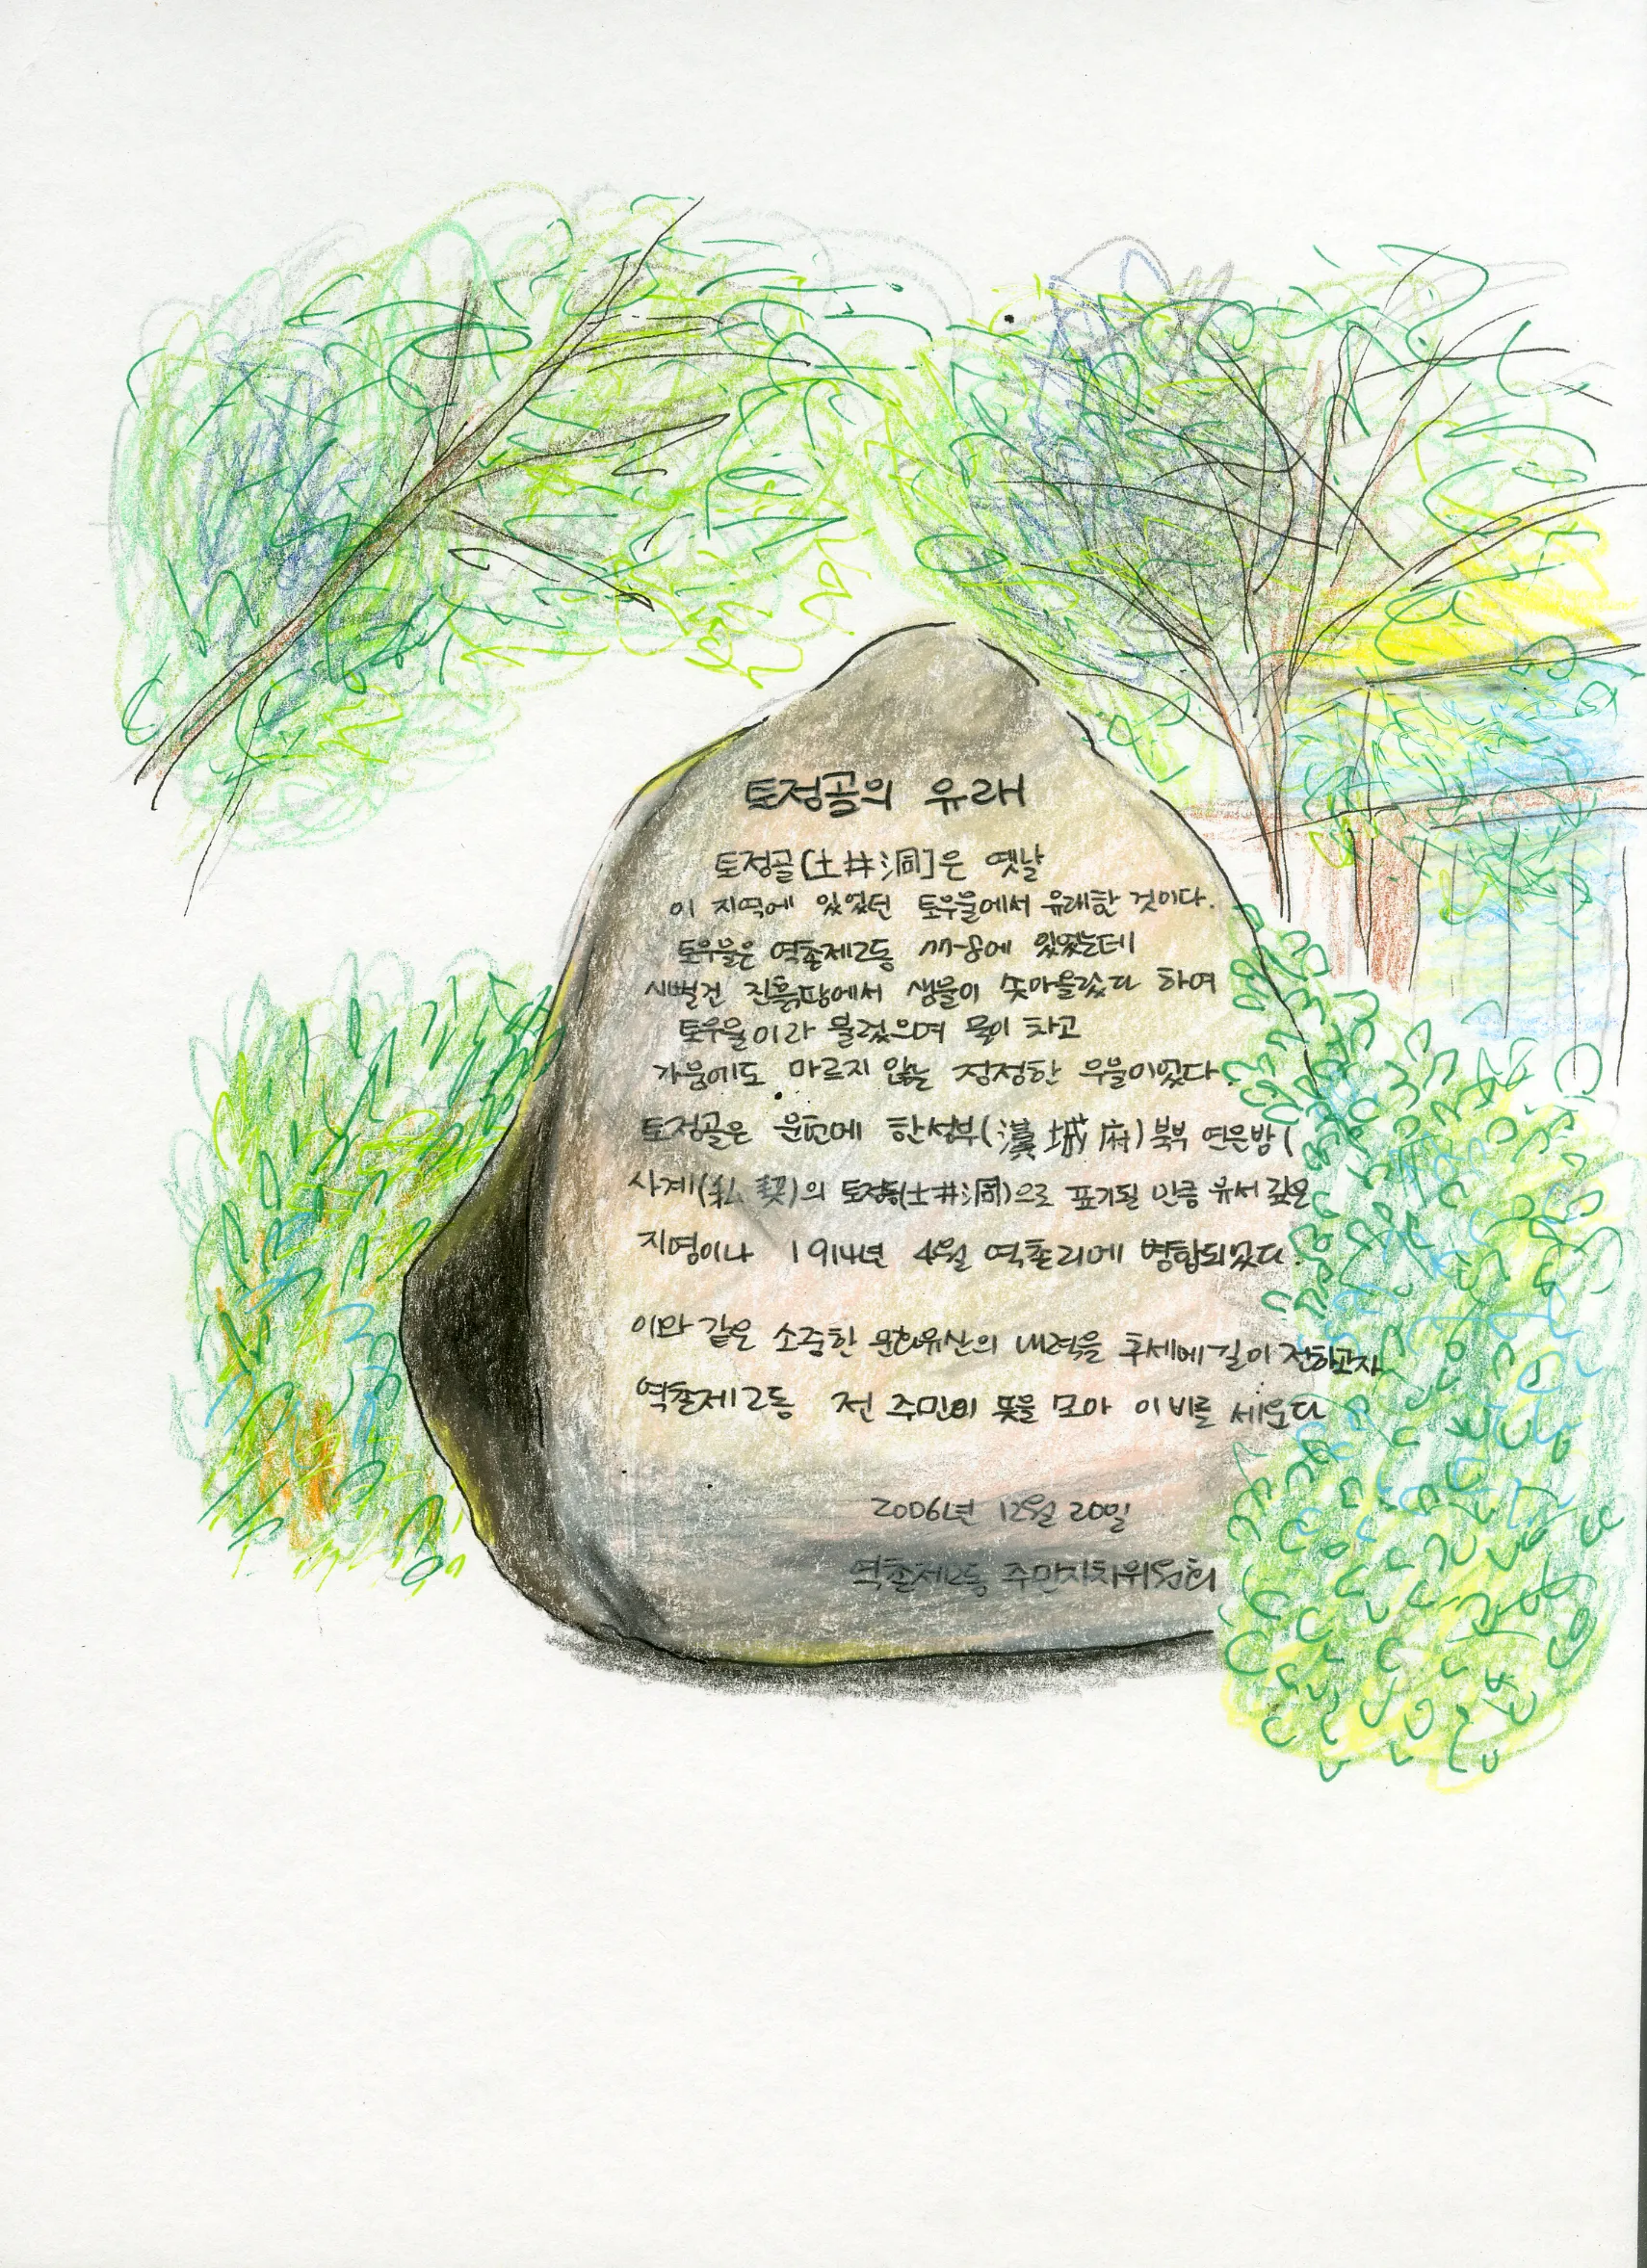 토정골의 유래
토정골[土井洞]은 옛날
이 지역에 있었던 토우물에서 유래한 것이다.
토우물은 역촌제2동 에 있었는데
시뻘건 진흙땅에서 샘물이 솟아올랐다 하여
토우물이라 불렸으며 물이 차고
가뭄에도 마르지 않는 정정한 우물이었다.
토정골은 문헌에 한성부(漢城府) 북부 연은방(
사계(私契)의 토정동(土井洞)으로 표기될 만큼 유서 깊은
지명이나 1914년 4월 역촌리에 병합되었다.
이와 같은 소중한 문화유산의 내력을 후세에 길이 전하고자
역촌제2동 전 주민이 뜻을 모아 이 비를 세운다
2006년 12월 20일
역촌제2동 주민자치위원회